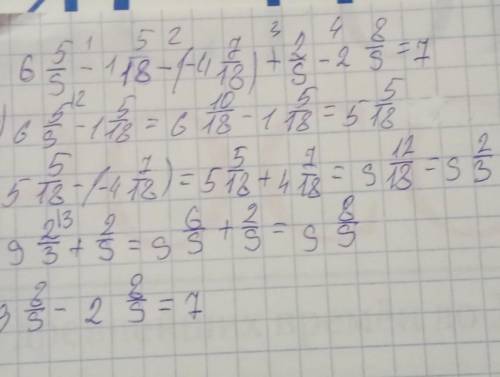 1 2 3 4
6 5/9 - 1 5/18 - (-4 7/18) + 2/9 - 2 8/9 = 7
) 6 5/9 \2 - 1 5/18 = 6 10/18 - 1 5/18 = 5 5/18
5 5/18 - (-4 7/18) = 5 5/18 + 4 7/18 = 9 12/18 = 9 2/3
9 2/3 \3 + 2/9 = 9 6/9 + 2/9 = 9 8/9
9 8/9 - 2 8/9 = 7